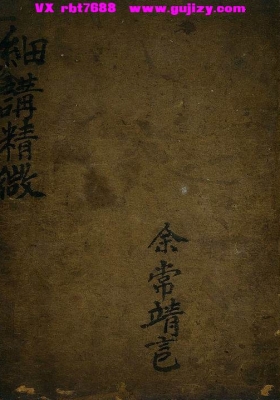 VX rbt7688 www.gujizy.com
細講精微
余常靖言